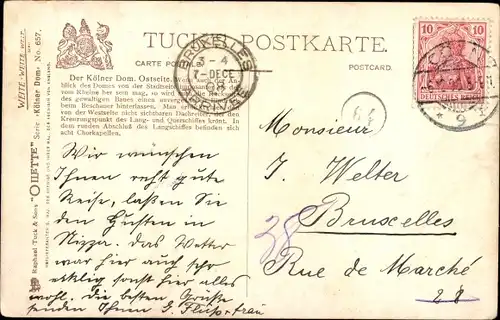 TUCK'S POSTKARTE.
CARTE POSTALE
POSTCARD.
WRITE-WRITE
Raphael Tuck & Sons' "OILETTE" Serie „Kölner Dom“ No. 657.
BRUXELLES
3-4
7-DECE
10
DEUTSCHES REICH
Der Kölner Dom. Ostseite.
blick des Domes von der Stadtseite
vom Rheine her sein mag, so wird
des gewaltigen Baues einen
beim Beschauer hinterlassen. Man
von der Westseite nicht sichtbaren Dachreiter, der den
Kreuzungspunkt des Lang- und Querschiffes krönt. In
dem runden Abschluß des Langschiffes befinden sich
acht Chorkapellen.
Wir wünschen
Ihnen recht gute
Reise, laßen Sie
den Husten in
Nizza. Das Wetter
war hier auch sehr
sonst hier alles
wohl. Die besten Grüße
senden Ihnen G. Frau
Monsieur
J. Welter
Bruxelles
Rue de Marché
28
38